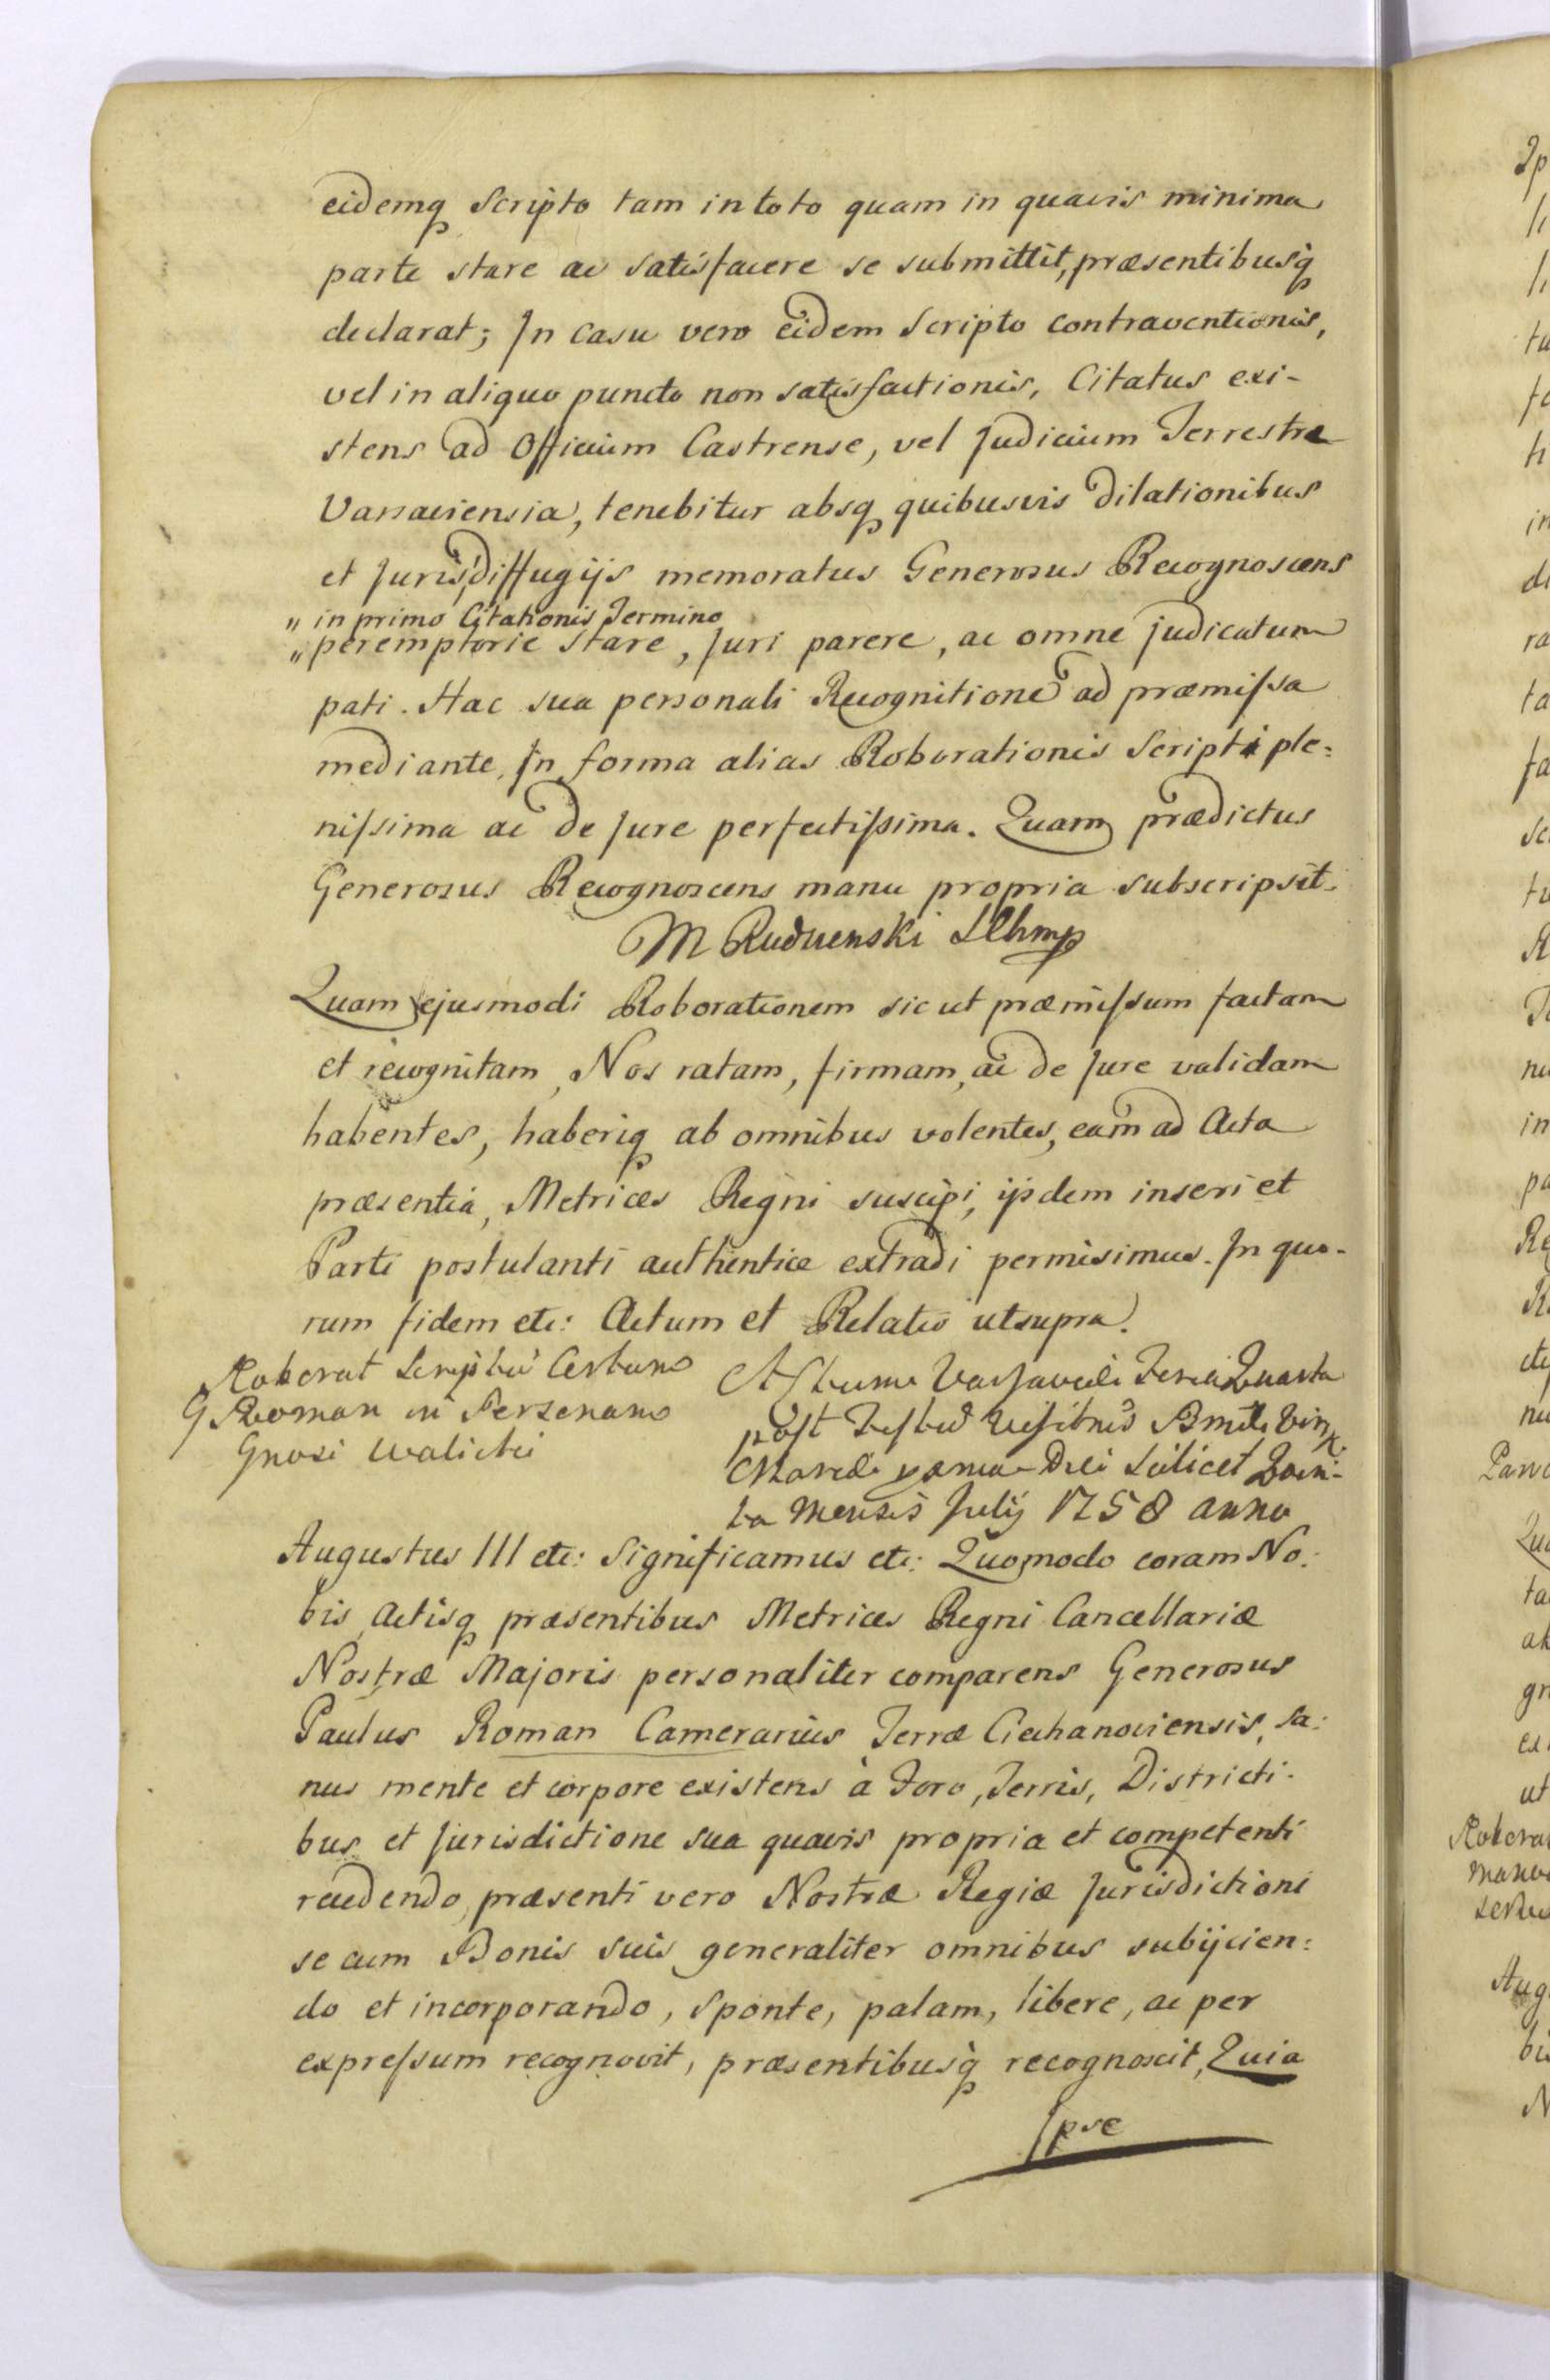 eidemq Scripto tam in toto quam in quavis minima
parte stare ac satisfacere se submittit, præsentibusq
declarat; In casu vero eidem Scripto contraventionis,
vel in aliquo puncto non satisfactionis, Citatus exi-
stens ad Officium Castrense, vel Judicium Terrestre
Varsaviensia, tenebitur absq quibusvis dilationibus
et Juris diffugijs memoratus Generosus Recognoscens
" in primo Citationis Termino
" peremptorie stare, Juri parere, ac omne judicatum
pati. Hac sua personali Recognitione ad præmissa
mediante, In forma alias Roborationis Scripti ple:
nissima ac de Jure perfectissima. Quam prædictus
Generosus Recognoscens manu propria subscripsit.
M Rudnenski
Quam ejusmodi Roborationem sic ut præmissum factam
et recognitam, Nos ratam, firmam, ac de Jure validam
habentes, haberiq ab omnibus volentes, eam ad Acta
præsentia, Metrices Regni suscipi, ijsdem inseri et
Parti postulanti authentice extradi permisimus. In quo-
rum fidem etc: Actum et Relatio ut supra.
Roborat Scriptū Certum
G Roman in Personam
Gnosi Walicki
Actum Varsaviæ Feria Quarta
post Festū Visitnis Bmæ Virg.
Mariæ Die Scilicet Quin-
ta Mensis Julij 1758 anno
Augustus III etc: Significamus etc: Quomodo coram No:
bis Actisq præsentibus Metrices Regni Cancellariæ
Nostræ Majoris personaliter comparens Generosus
Paulus Roman Camerarius Terræ Ciechanoviensis, sa:
nus mente et corpore existens à Foro, Terris, Districti-
bus et Jurisdictione sua quavis propria et competenti
recedendo, præsenti vero Nostræ Regiæ Jurisdictioni
se cum Bonis suis generaliter omnibus subijcien:
do et incorporando, sponte, palam, libere, ac per
expressum recognovit, præsentibusq recognoscit, Quia
Ipse